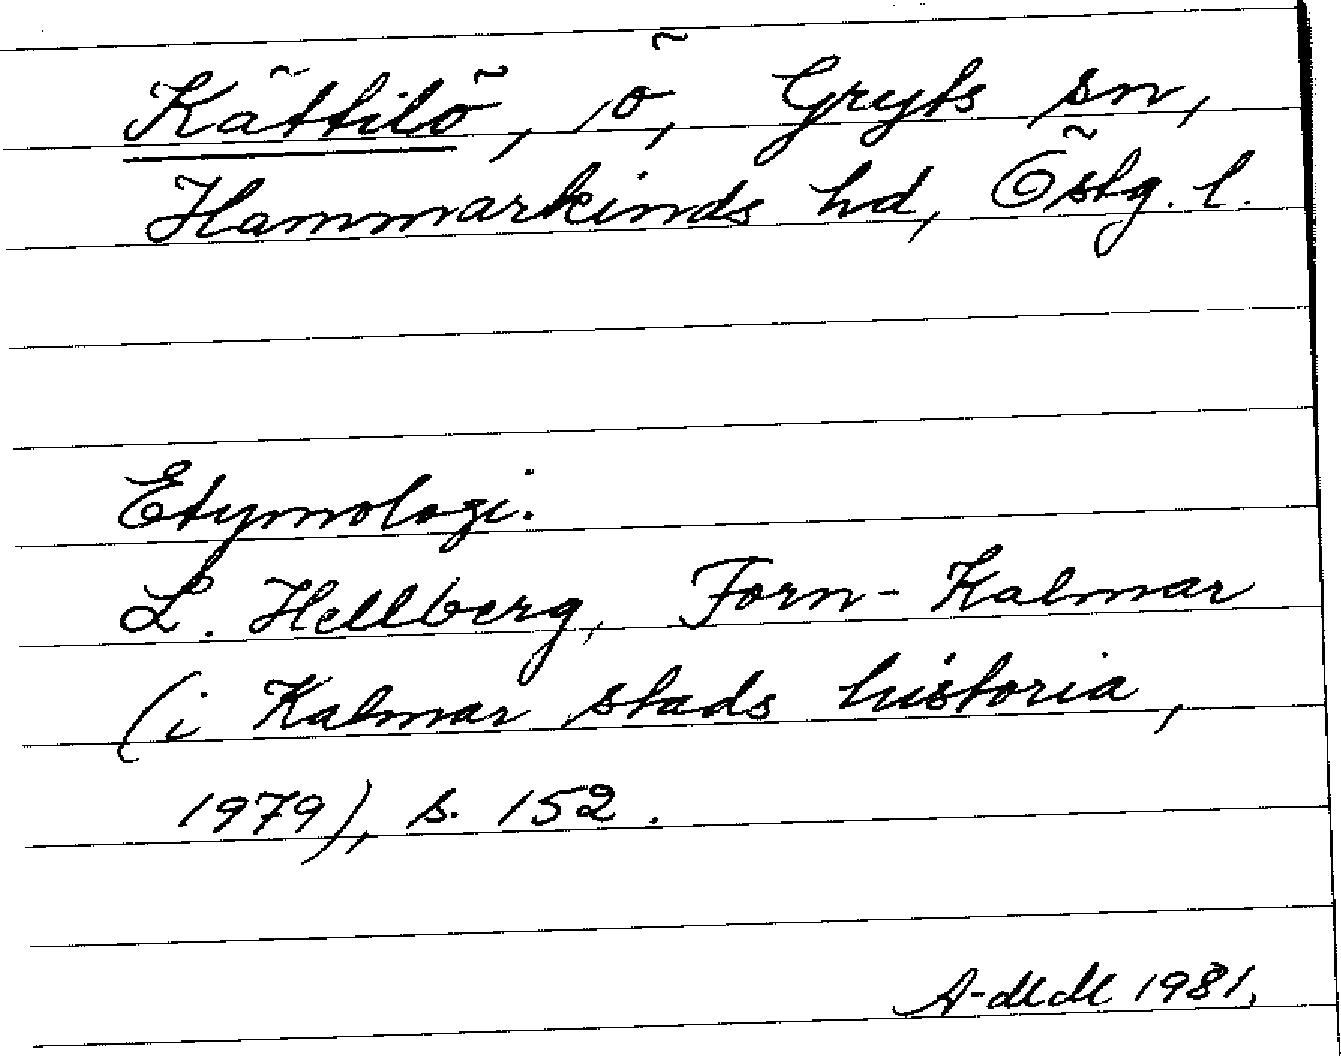 Kättilö, ö, Gryts sn,
Hammarkinds hd, Östg. l.
Etymologi.
L. Hellberg, Forn-Kalmar
(i Kalmar stads historia,
1979), s. 152.
A-MM 1981.